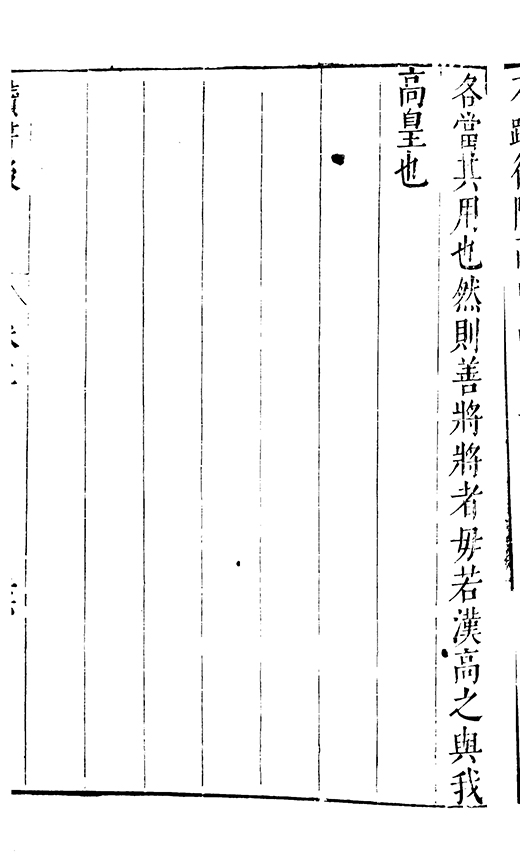 各當其用也然則善將將者毋若漢高之與我
高皇也